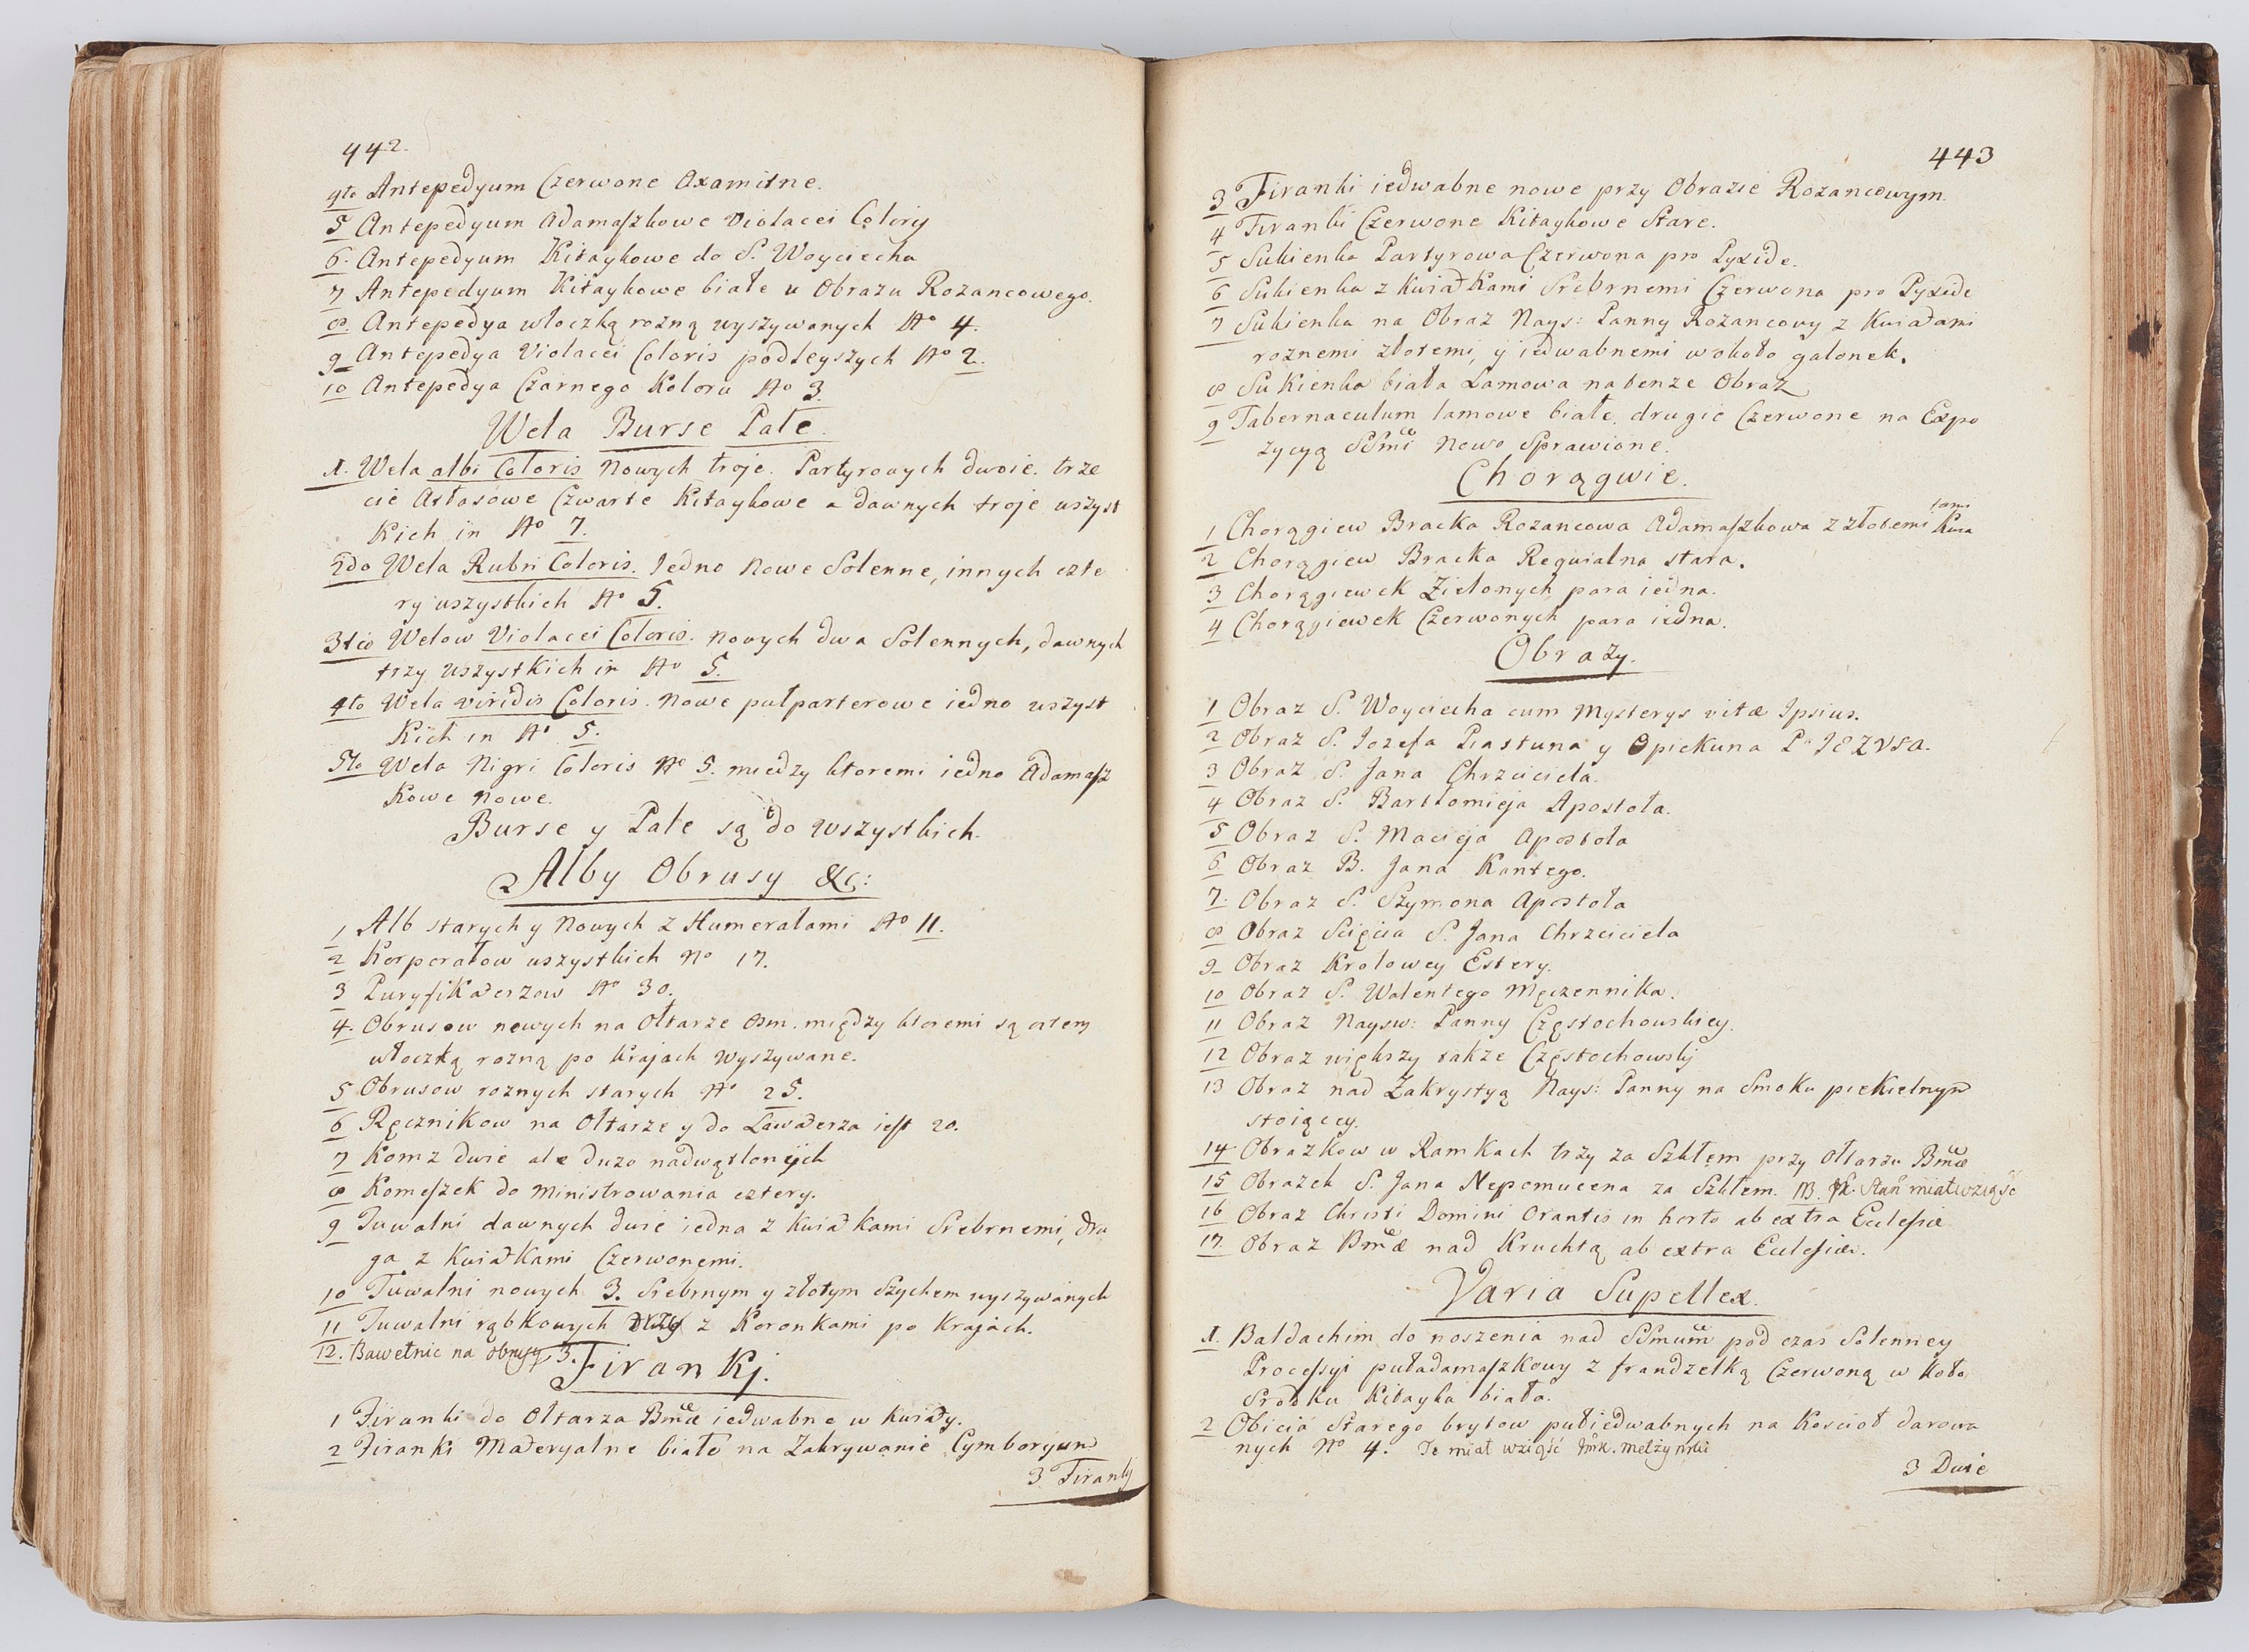 442.
4to Antepedyum Czerwone Axamitne.
5 Antepedyum Adamaszkowe Violacei Coloris
6. Antepedyum Kitaykowe do S. Woyciecha
7 Antepedyum Kitaykowe białe u Obrazu Rozancowego.
8. Antepedya włoczką rozną wyszywanych No 4.
9 Antepedya Violacei Coloris podleyszych No 2.
10 Antepedya Czarnego Koloru No 3.
Wela Burse Pale
1. Wela albi Coloris Nowych troje. Partyrowych dwoie. trze
cie Atłasowe Czwarte Kitaykowe a dawnych troje wszyst
Kich in No 7.
2do Wela Rubri Coloris. Jedno Nowe Solenne, innych czte
ry wszystkich No 5.
3tio Welow Violacei Coloris. nowych dwa Solennych, dawnych
trzy wszystkich in No 5.
4to Wela viridis Coloris. Nowe pułparterowe iedno wszyst
Kich in No 5.
5to Wela Nigri Coloris No 5. miedzy ktoremi iedno Adamasz
Kowe Nowe.
Burse y Pale są do wszystkich.
Alby Obrusy &c:
1 Alb starych y Nowych z Humerałami No 11.
2 Korporałow wszystkich No 17.
3 Puryfikaterzow No 30.
4. Obrusow nowych na Ołtarze osm. między ktoremi są cztery
włoczką rozną po Krajach wyszywane.
5 Obrusow roznych starych No 25.
6 Ręcznikow na Ołtarze y do Lawaterza iest 20.
7 Komz dwie ale duzo nadwątlonych
8 Komeszek do Ministrowania cztery.
9 Tuwalni dawnych dwie iedna z Kwiatkami Srebrnemi, dru
ga z Kwiatkami Czerwonemi.
10 Tuwalni nowych 3. Srebrnym y złotym Szychem wyszywanych
11 Tuwalni rąbkowych z Koronkami po Krajach.
12. Bawełnic na obrusy 3.
Firankj.
1 Firanki do Ołtarza Bmæ iedwabne w Kwiaty.
2 Firanki Materyalne białe na Zakrywanie Cymboryum
3 Firankj
443
3 Firanki iedwabne nowe przy Obrazie Rozancowym.
4 Firanki Czerwone Kitaykowe Stare.
5 Sukienka Partyrowa Czerwona pro Pyxide.
6 Sukienka z Kwiatkami Srebrnemi Czerwona pro Pyxide
7 Sukienka na Obraz Nays: Panny Rozancowy z Kwiatami
roznemi złotemi, y iedwabnemi wokoło galonek.
8 Sukienka biała Lamowa na tenze Obraz
9 Tabernaculum lamowe białe, drugie Czerwone na Expo
zycyą SSmi nowo Sprawione.
Chorągwie.
1 Chorągiew Bracka Rozancowa Adamaszkowa z złotemi Kwia
tami
2 Chorągiew Bracka Requialna stara.
3 Chorągiewek Zielonych para iedna.
4 Chorągiewek Czerwonych para iedna.
Obrazy.
1 Obraz S. Woyciecha cum Mysterys vitæ Ipsius.
2 Obraz S. Jozefa Piastuna y Opiekuna P. JEZUSA.
3 Obraz S. Jana Chrzciciela.
4 Obraz S. Bartłomieja Apostoła.
5 Obraz S. Macieja Apostoła
6 Obraz B. Jana Kantego.
7. Obraz S. Szymona Apostoła
8 Obraz Scięcia S. Jana Chrzciciela
9 Obraz Krolowey Estery.
10 Obraz S. Walentego Męczennika.
11 Obraz Naysw: Panny Częstochowskiey.
12 Obraz większy takze Częstochowskj
13 Obraz nad Zakrystyą Nays: Panny na Smoku piekielnym
stoiącey.
14 Obrazkow w Ramkach trzy za Szkłem przy Ołtarzu Bmæ
15 Obrazek S. Jana Nepomucena za Szkłem. miał wziąść
16 Obraz Christi Domini Orantis in horto ab extra Ecclesiæ
17. Obraz Bmæ nad Kruchtą ab extra Ecclesiæ.
Varia Supellex.
1. Baldachim do noszenia nad SSmum pod czas Solenney
Procesyi puładamaszkowy z frandzelką Czerwoną w Koło
Srodku Kitayka biała.
2 Obicia Starego brytow pułiedwabnych na Kościoł darowa
nych No 4. Te miał wziąść
3 Dwie